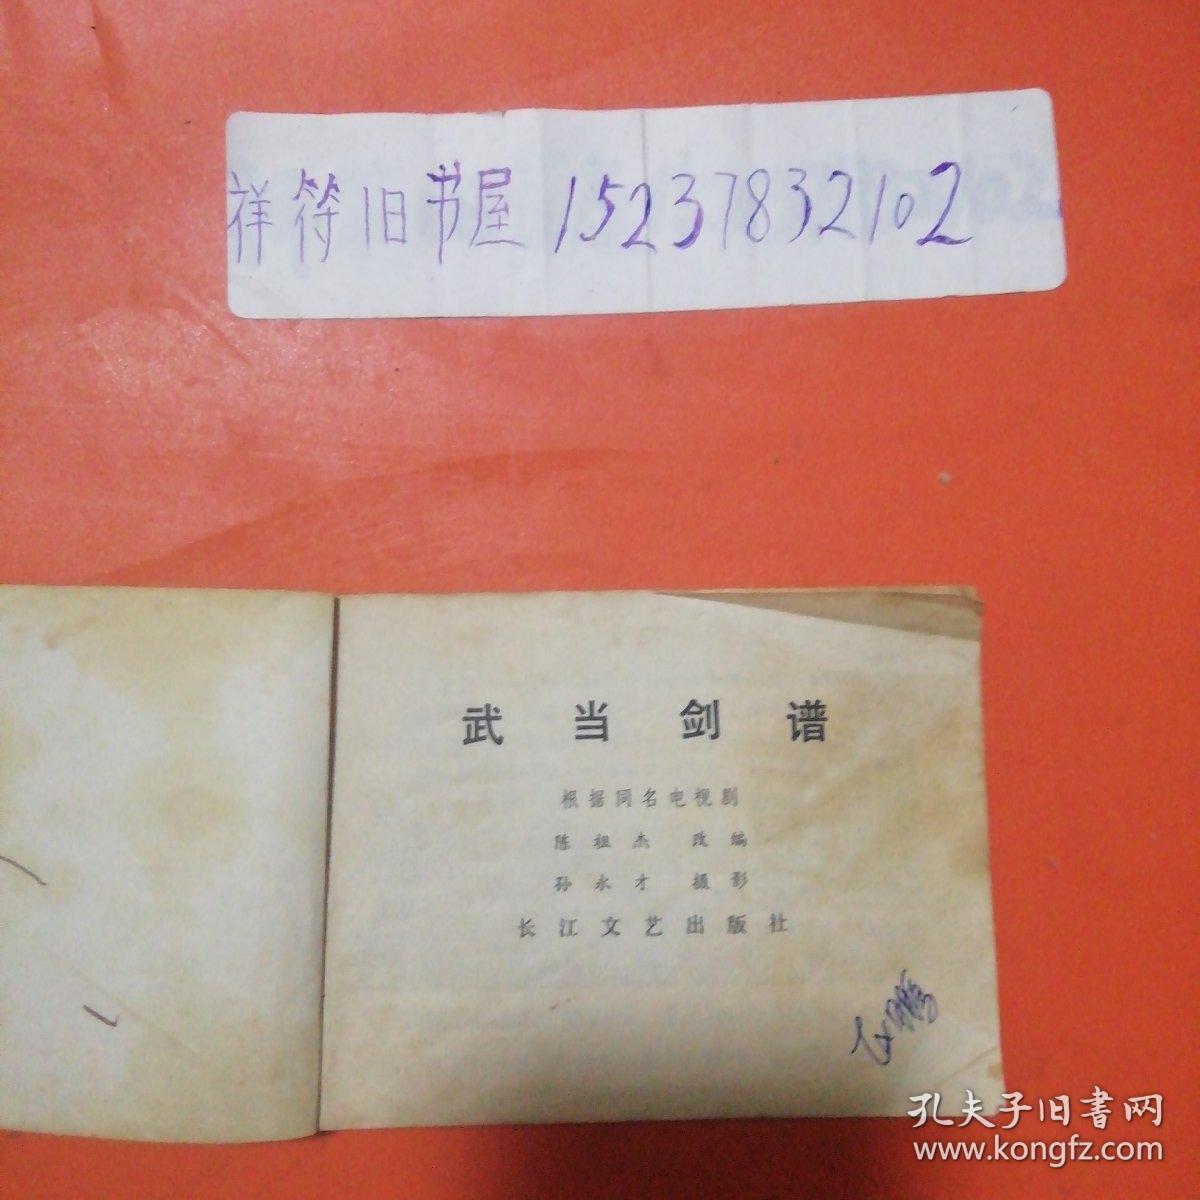 祥符旧书屋 15237832102
武当剑谱
根据同名电视剧
陈祖杰 改编
孙永才 摄影
长江文艺出版社
孔夫子旧書网
www.kongfz.com